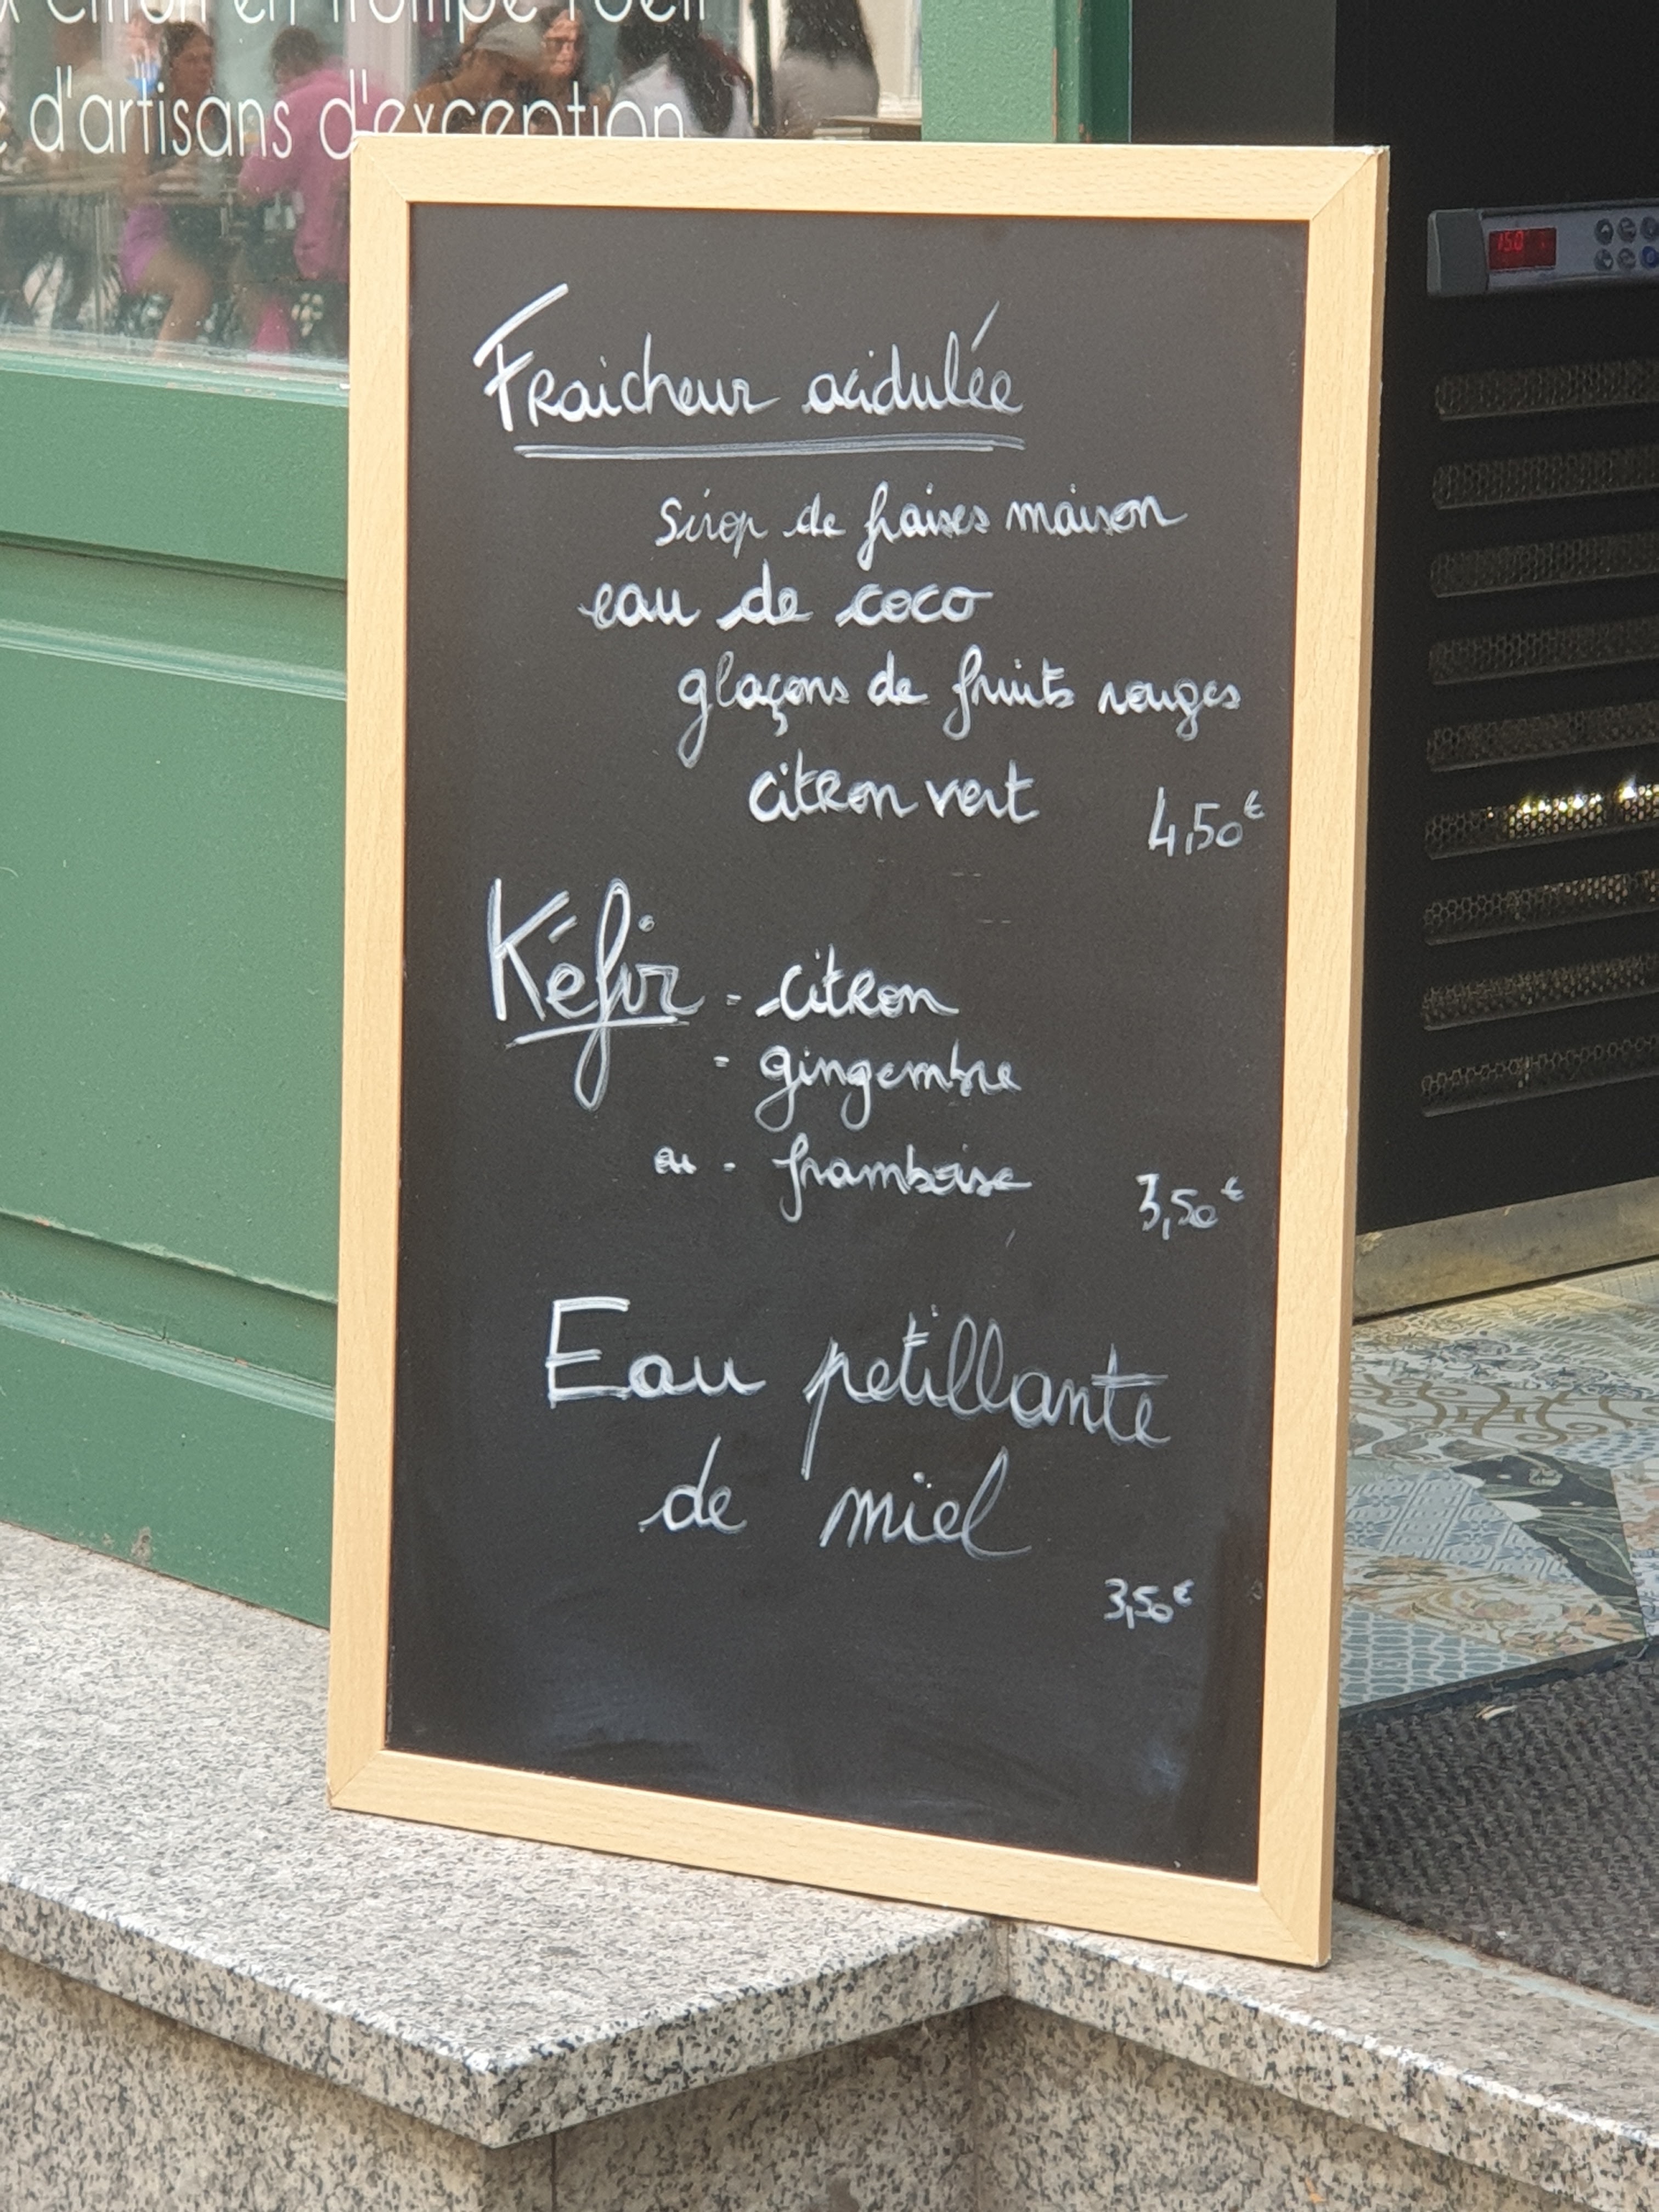 citron en trompe l'oeil
d'artisans d'exception
15.0
Fraicheur acidulée
sirop de fraises maison
eau de coco
glaçons de fruits rouges
citron vert 4,50€
Kéfir - citron
- gingembre
ou - framboise 3,50€
Eau petillante
de miel
3,50€